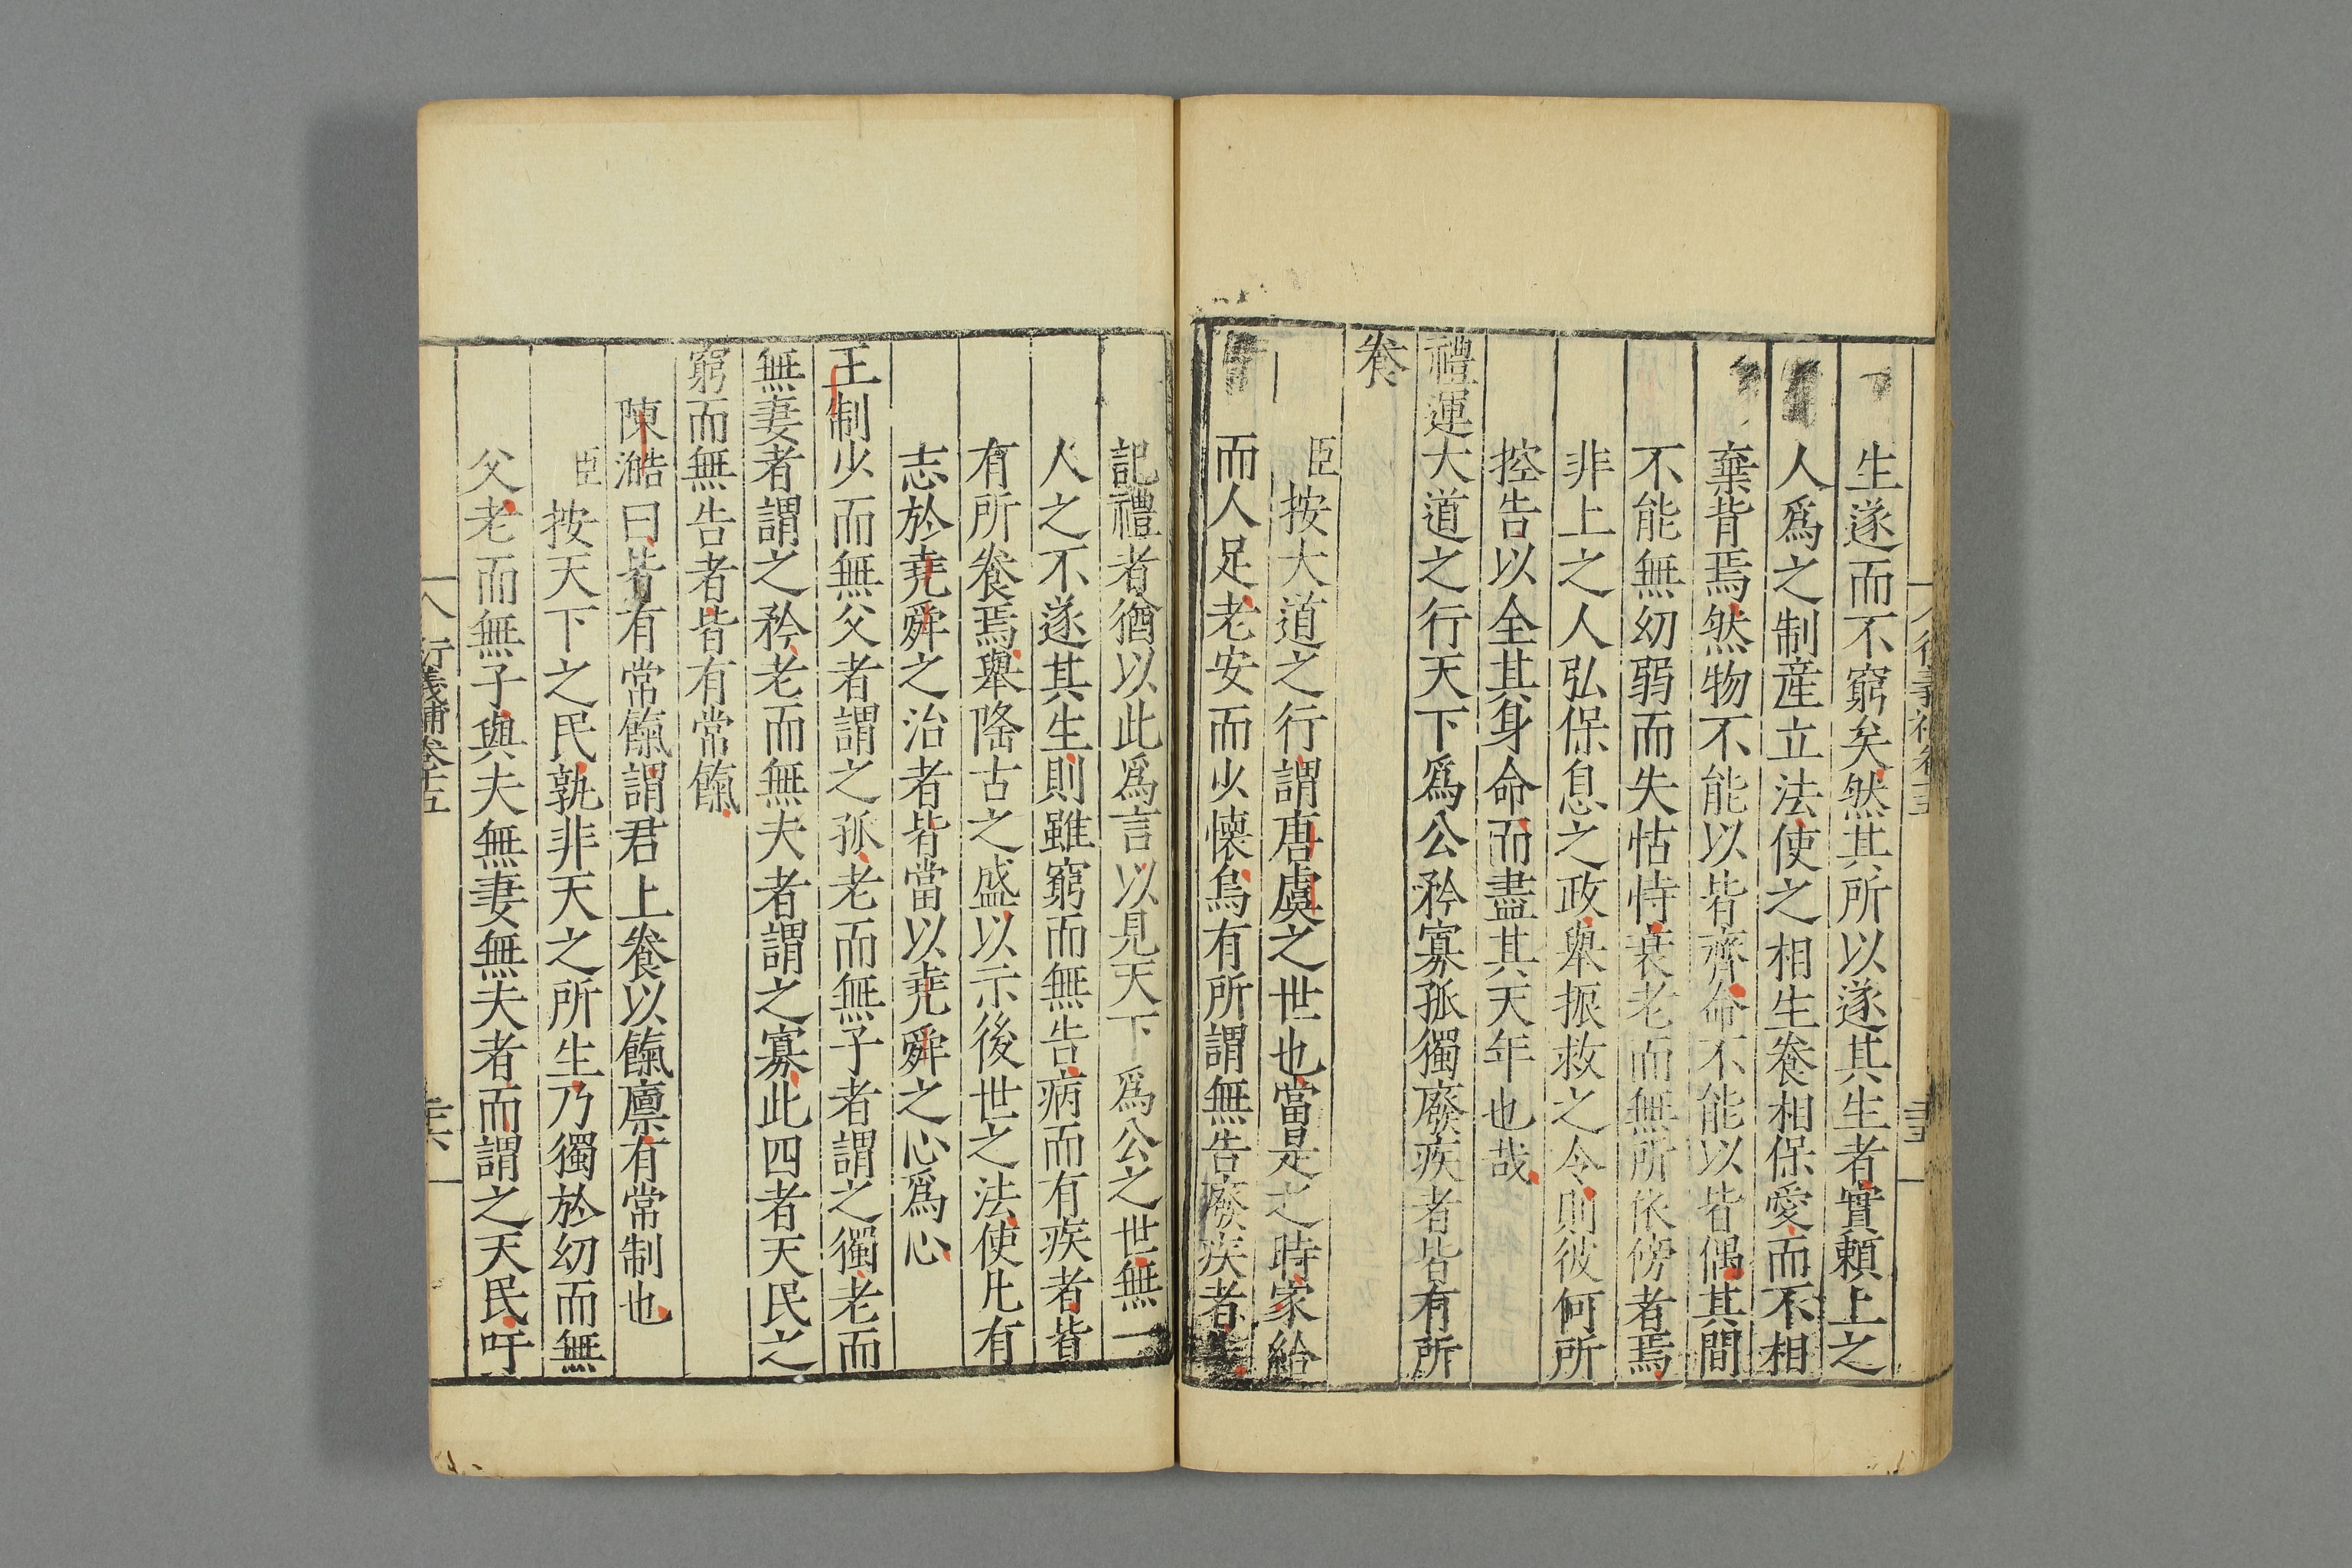 生遂而不窮矣然其所以遂其生者實頼上之
人爲之制産立法使之相生養相保愛而不相
棄背焉然物不能以皆齊命不能以皆偶其間
不能無幼弱而失怙恃衰老而無所依傍者焉
非上之人弘保息之政舉振救之令則彼何所
控告以全其身命而盡其天年也哉
禮運大道之行天下爲公矜寡孤獨廢疾者皆有所
養
臣按大道之行謂唐虞之世也當是之時家給
而人足老安而少懷烏有所謂無告廢疾者
記禮者猶以此爲言以見天下爲公之世無一
人之不遂其生則雖窮而無告病而有疾者皆
有所養焉舉隆古之盛以示後世之法使凡有
志於堯舜之治者皆當以堯舜之心爲心
王制少而無父者謂之孤老而無子者謂之獨老而
無妻者謂之矜老而無夫者謂之寡此四者天民之
窮而無告者皆有常餼
陳澔曰皆有常餼謂君上養以餼廩有常制也
臣按天下之民孰非天之所生乃獨於幼而無
父老而無子與夫無妻無夫者而謂之天民吁
行義補卷十五